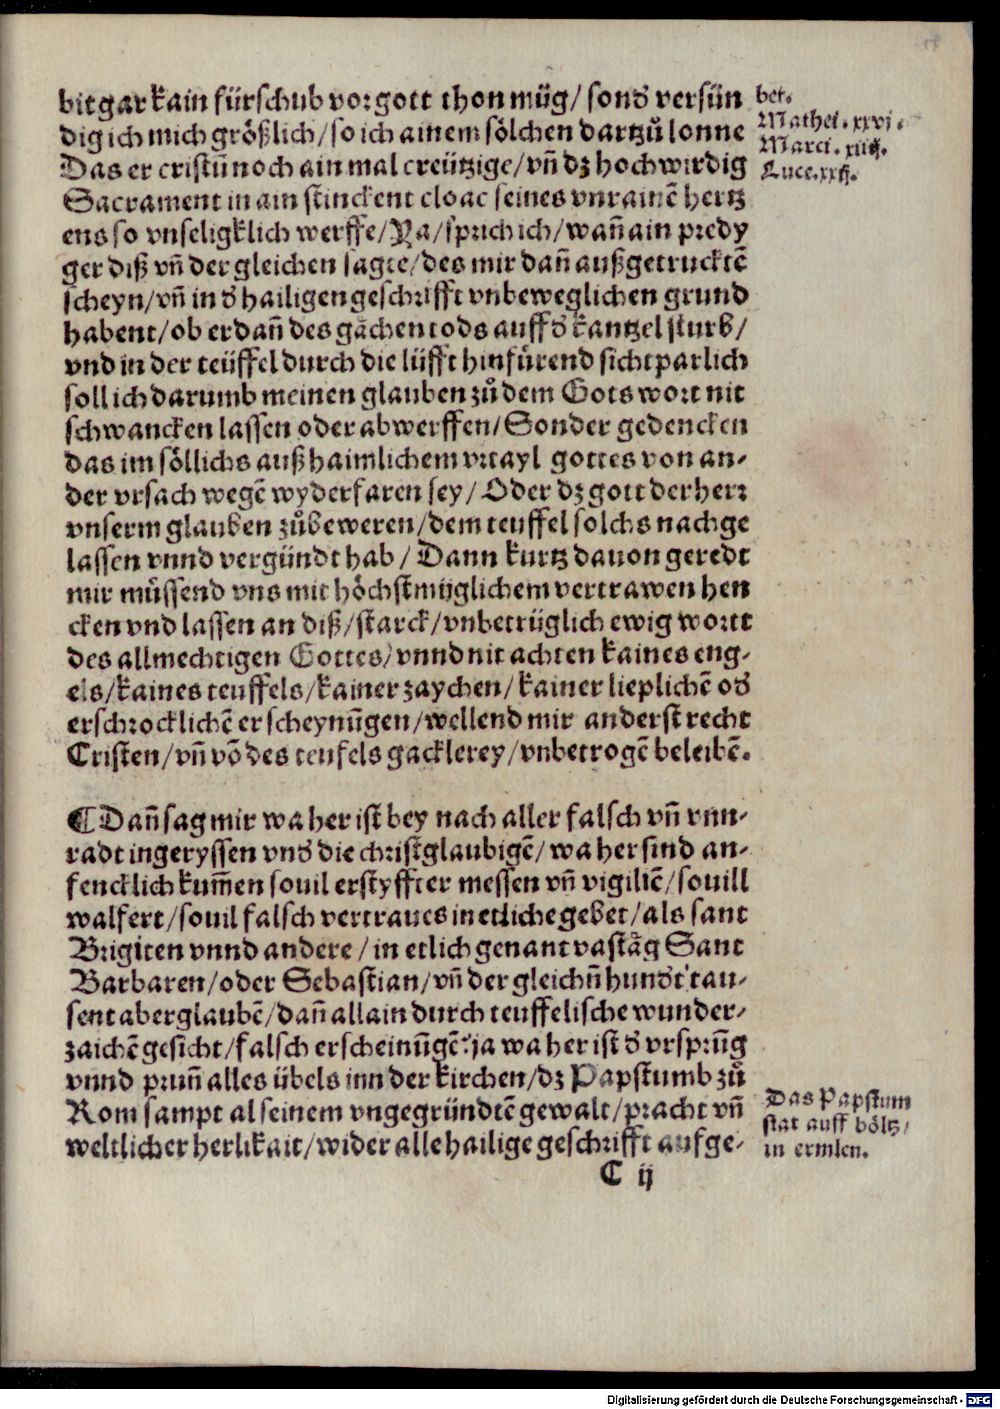 bit gar kain fürschub vor gott thon müg/ sonđ versün
dig ich mich größlich/ so ich ainem sölchen dartzů lonne
Das er cristū noch ain mal creützige/ vn̄ dz hochwirdig
Sacrament in ain stinckent cloac seines vnrainē hertz
ens so vnseligklich werffe/ Ya/ sprich ich/ wan̄ ain predy
ger diß vn̄ der gleichen sagte/ des mir dan̄ außgetrucktē
scheyn/ vn̄ in đ hailigen geschrifft vnbeweglichen grund
habent/ ob er dan̄ des gächen tods auff đ kantzel sturb/
vnd in der teüffel durch die lüfft hinfürend sichtparlich
soll ich darumb meinen glauben zů dem Gots wort nit
schwancken lassen oder abwerffen/ Sonder gedencken
das im söllichs auß haimlichem vrtayl gottes von an-
der vrsach wegē wyderfaren sey/ Oder dz gott der herr
vnserm glauben zů beweren/ dem teuffel solchs nachge
lassen vnnd vergündt hab/ Dann kurtz dauon geredt
mir můssend vns mit höchstmüglichem vertrawen hen
cken vnd lassen an diß/ starck/ vnbetrüglich ewig wortt
des allmechtigen Gottes/ vnnd nit achten kaines eng-
els/ kaines teuffels/ kainer zaychen/ kainer lieplichē ođ
erschrocklichē erscheynūgen/ wellend mir anderst recht
Cristen/ vn̄ vō des teufels gacklerey/ vnbetrogē beleibē.
¶ Dan̄ sag mir wa her ist bey nach aller falsch vn̄ vnn-
radt ingeryssen vnđ die christglaubigē/ wa her sind an-
fencklich kum̄en souil erstyffter messen vn̄ vigiliē/ souill
walfert/ souil falsch vertraues in etliche gebet/ als sant
Brigiten vnnd andere/ in etlich genant vastāg Sant
Barbaren/ oder Sebastian/ vn̄ der gleichn̄ hunđt tau-
sent aberglaubē/ dan̄ allain durch teuffelische wunder-
zaichē gesicht/ falsch erscheinūgē: ja wa her ist đ vrsprūg
vnnd prun̄ alles übels inn der kirchen/ dz Papstumb zů
Rom sampt al seinem vngegründtē gewalt/ pracht vn̄
weltlicher herlikait/ wider alle hailige geschrifft aufge-
C ij
bet.
Mathei. xxvj.
Marci. xiiij.
Luce. xxij.
Das Papstum
stat auff böltz/
in ermlen.
Digitalisierung gefördert durch die Deutsche Forschungsgemeinschaft - DFG